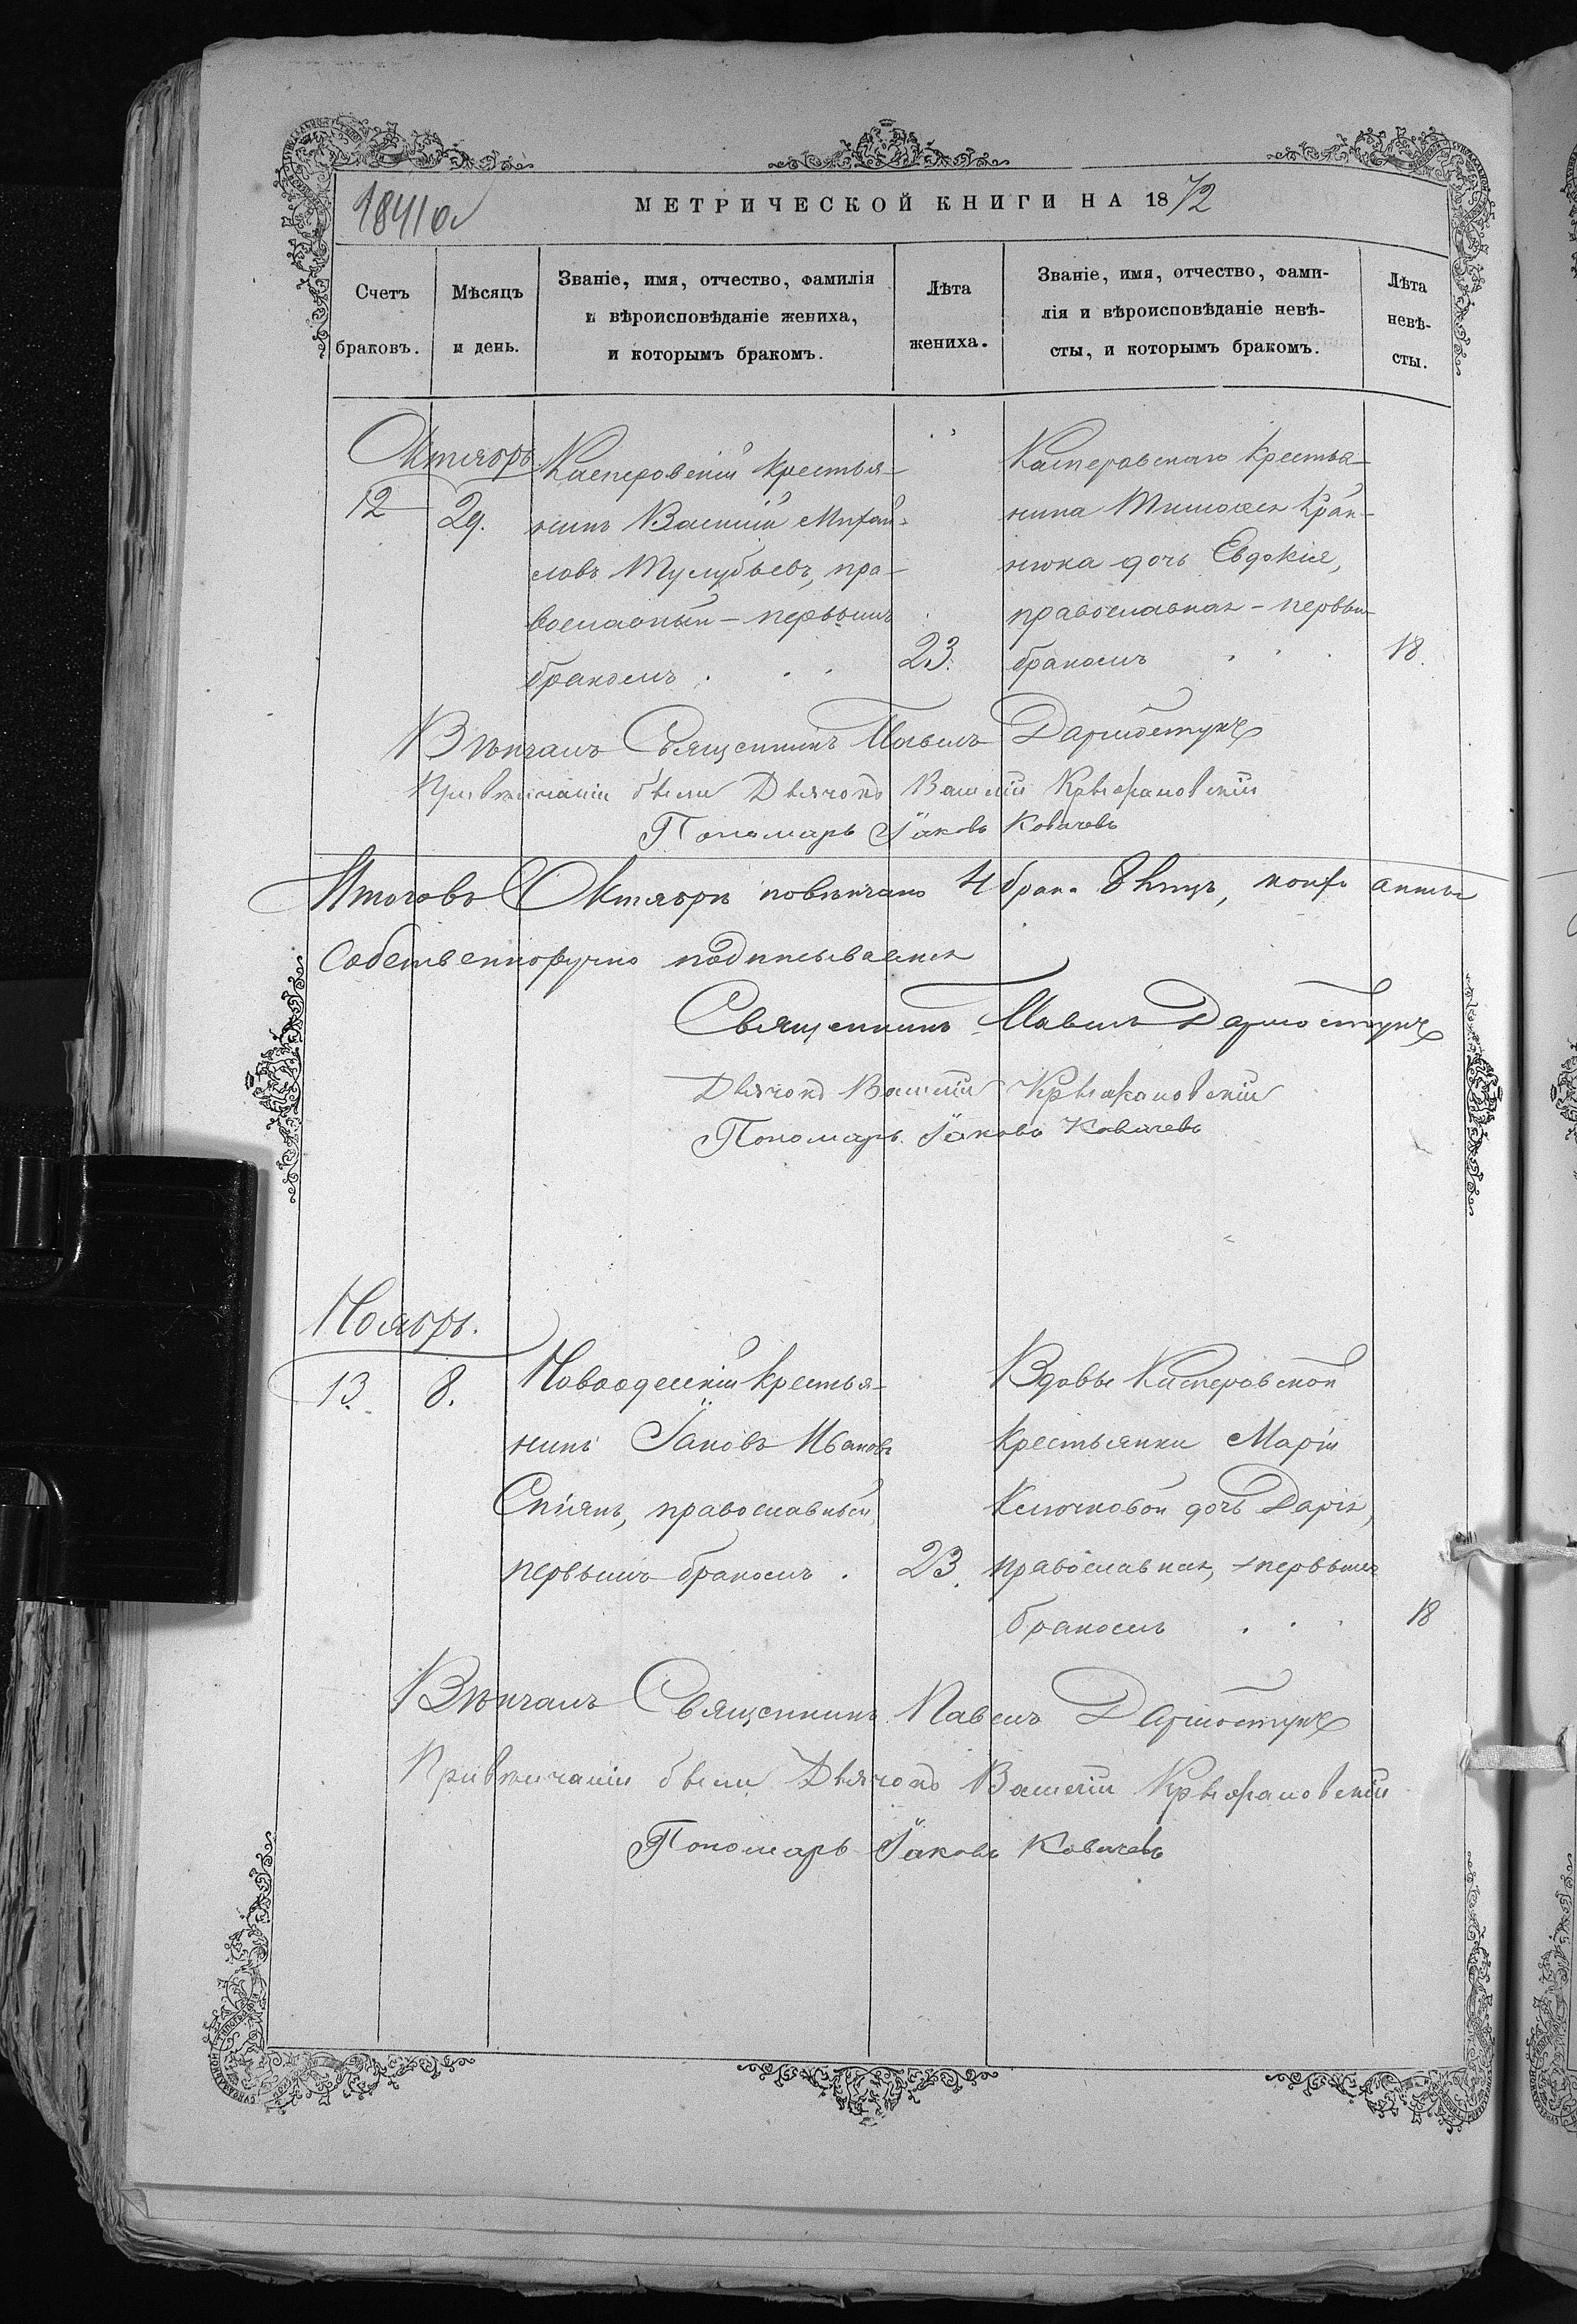 1841 об
МЕТРИЧЕСКОЙ КНИГИ НА 1872
Счетъ браковъ.
Мѣсяцъ и день.
Званіе, имя, отчество, фамилія
и вѣроисповѣданіе жениха,
и которымъ бракомъ.
Лѣта жениха.
Званіе, имя, отчество, фами-
лія и вѣроисповѣданіе невѣ-
сты, и которымъ бракомъ.
Лѣта невѣ-
сты.
Октябрь
12
29.
Касперовскій крестья-
нинъ Василій Михай-
ловъ пра-
вославный - первымъ
бракомъ
23.
Касперовскаго крестья-
нина Тимофея
дочь Евдокія,
православная - первым
бракомъ
18.
Вѣнчалъ Священникъ Павелъ
Привѣнчаніи были Дьячокъ Василій
Пономарь Іаковъ Ковачевъ
Итого въ Октябрѣ повѣнчано 4 брак.
Собственноручно подписываемся
Священникъ Павелъ
Дьячокъ Василій
Пономарь Іаковъ Ковачевъ
Ноябрь.
13.
8.
Новоодесскій крестья-
нинъ Іаковъ Ивановъ
православный
первымъ бракомъ.
23.
Вдовы Касперовской
крестьянки Маріи
Клочковой дочь Дарія,
православная, первымъ
бракомъ
18
Вѣнчалъ Священникъ Павелъ
Привѣнчаніи были Дьячокъ Василій
Пономарь Іаковъ Ковачевъ